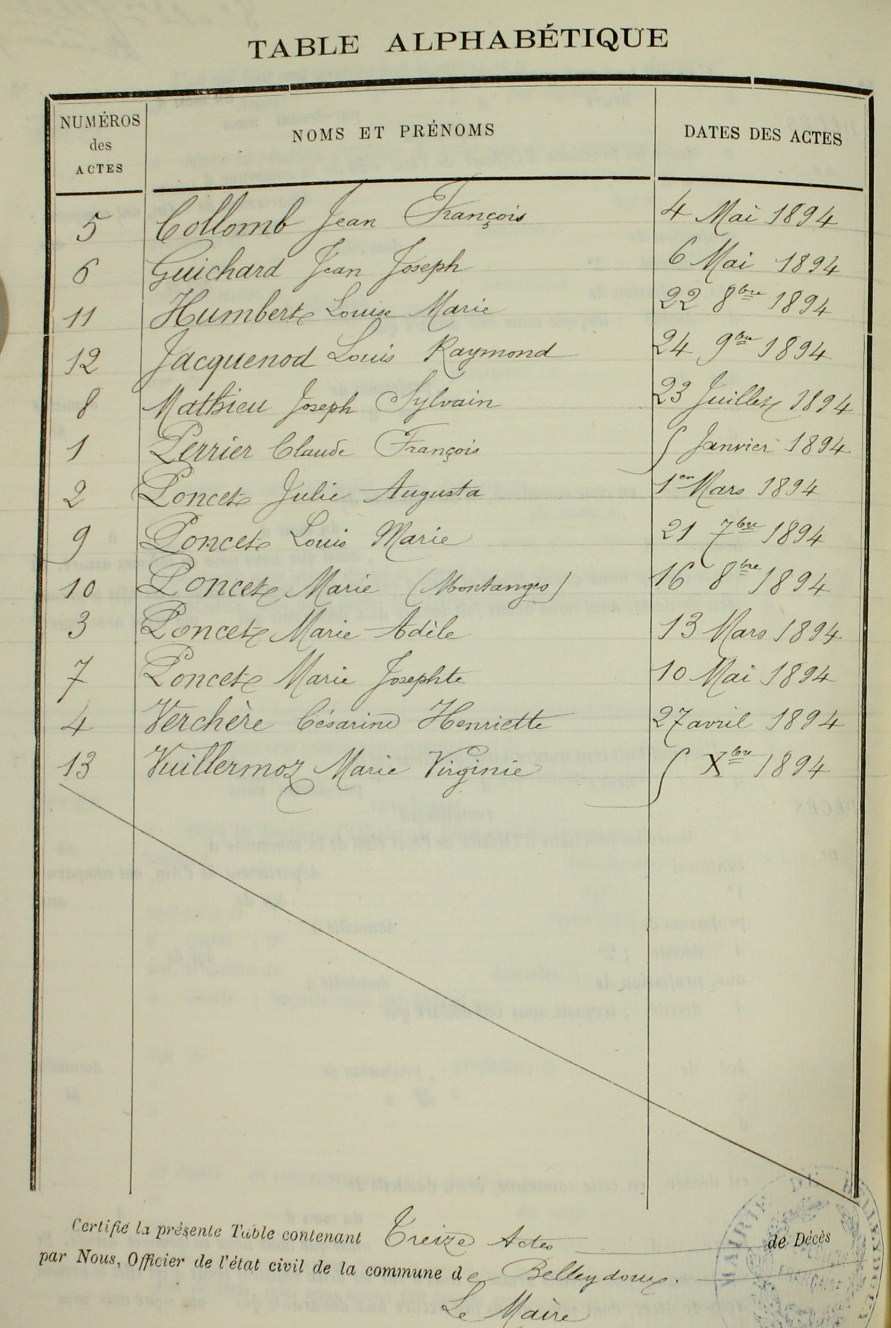 TABLE ALPHABÉTIQUE
NUMÉROS des ACTES NOMS ET PRÉNOMS DATES DES ACTES
5 Collomb Jean François 4 Mai 1894
6 Guichard Jean Joseph 6 Mai 1894
11 Humbert Louise Marie 22 8bre 1894
12 Jacquenod Louis Raymond 24 9bre 1894
8 Mathieu Joseph Sylvain 23 Juillet 1894
1 Perrier Claude François 5 Janvier 1894
2 Poncet Julie Augusta 1er Mars 1894
9 Poncet Louis Marie 21 7bre 1894
10 Poncet Marie (Montanges) 16 8bre 1894
3 Poncet Marie Adèle 13 Mars 1894
7 Poncet Marie Josephte 10 Mai 1894
4 Verchère Césarine Henriette 27 avril 1894
13 Vuillermoz Marie Virginie 5 Xbre 1894
Certifié la présente Table contenant Treize Actes de Décès
par Nous, Officier de l'état civil de la commune de Belleydoux.
Le Maire
MAIRIE DE BELLEYDOUX